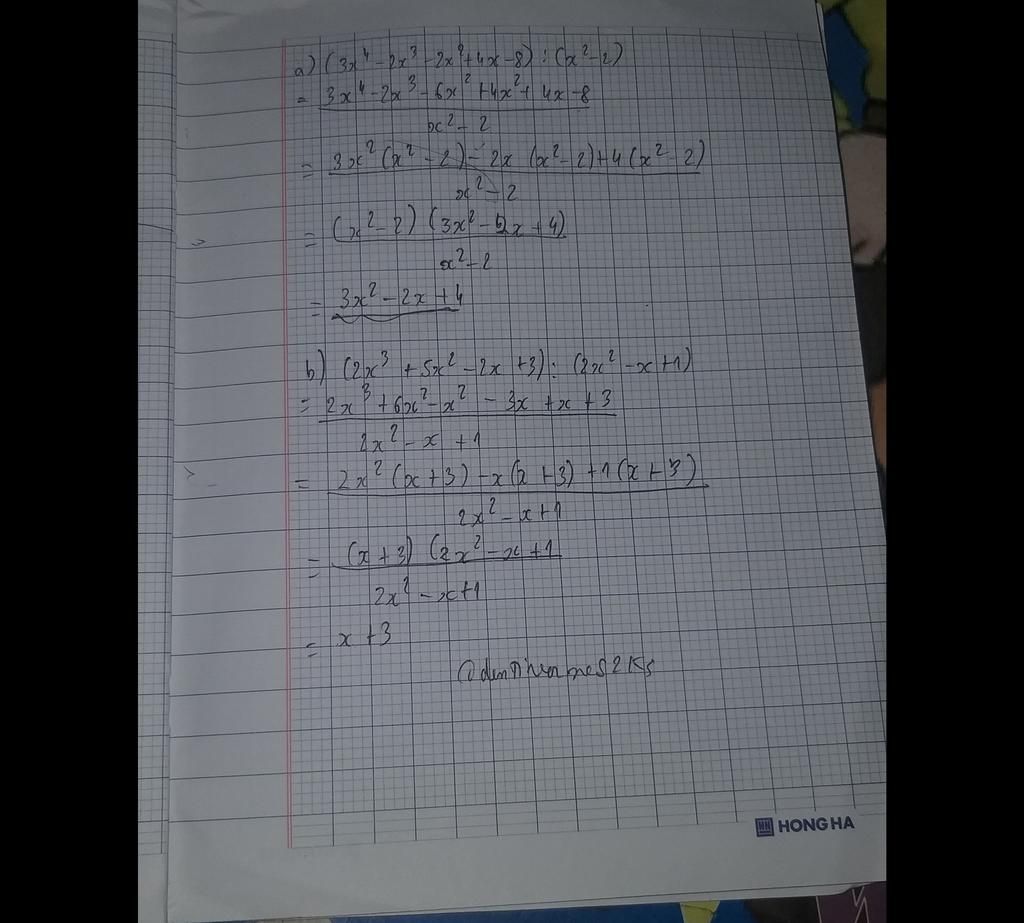 a) (3x⁴ - 2x³ - 2x² + 4x - 8) : (x² - 2)
= 3x⁴ - 2x³ - 6x² + 4x² + 4x - 8
x² - 2
= 3x² (x² - 2) - 2x (x² - 2) + 4 (x² - 2)
x² - 2
= (x² - 2) (3x² - 2x + 4)
x² - 2
= 3x² - 2x + 4
b) (2x³ + 5x² - 2x + 3) : (2x² - x + 1)
= 2x³ + 6x² - x² - 3x + x + 3
2x² - x + 1
= 2x² (x + 3) - x (x + 3) + 1 (x + 3)
2x² - x + 1
= (x + 3) (2x² - x + 1
2x² - x + 1
= x + 3
HONG HA